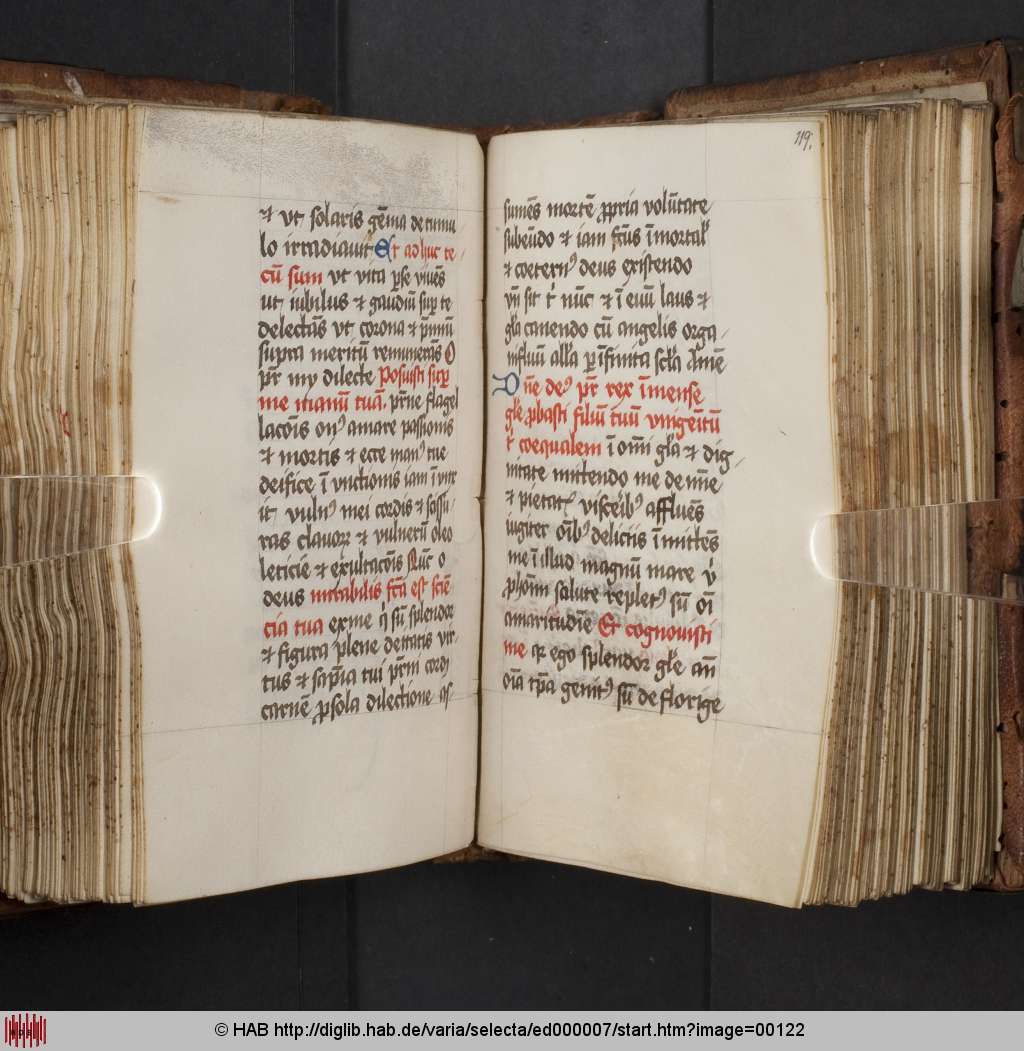 et ut solaris gēma de tumu
lo irradiauit Et adhuc te
cū sum ut vita p̱se viuēs
ut iubilus et gaudiū sup̱ te
delectās ut corona et p̄miū
supra meritū remunerās O
pr̄ my dilecte Posuisti sup̱
me manū tuā. pr̄ne flagel
lacōis onꝰ amare passionis
et mortis et ecce manꝰ tue
deifice ī vnctionis iam ī
it vulnꝰ mei cordis et scissu
ras clauoꝝ et vulnerū oleo
leticie et exultacōis Nūc o
deus mirabilis fc̄ā est sciē
cia tua ex me q̄ sū splendor
et figura plene deitatis vir
tus et sapīa tui pr̄ni cordi
carnē ꝓ sola dilectione as
119.
sumēs mortē ꝓpria volūtate
subeūdo et iam fc̄us īmortal
et coeternꝰ deus existendo
vn̄ sit t nūc et ī euū laus et
gl̄a canendo cū angelis orga
alla p̱ īfinita scl̄a amē
Dn̄e deꝰ pr̄ rex īmense
gl̄e ꝓbasti filiū tuū vnigeītū
t coequalem ī om̄i gl̄a et dig
nitate mittendo me de
et pietatꝭ visceribꝰ affluēs
iugiter oībꝰ deliciis īmittēs
me ī illud magnū mare
salute repletꝰ sū
amaritudīe Et cognouisti
me qr ego splendor gl̄e an̄
oīa tp̄a genitꝰ sū de florige
© HAB http://diglib.hab.de/varia/selecta/ed000007/start.htm?image=00122